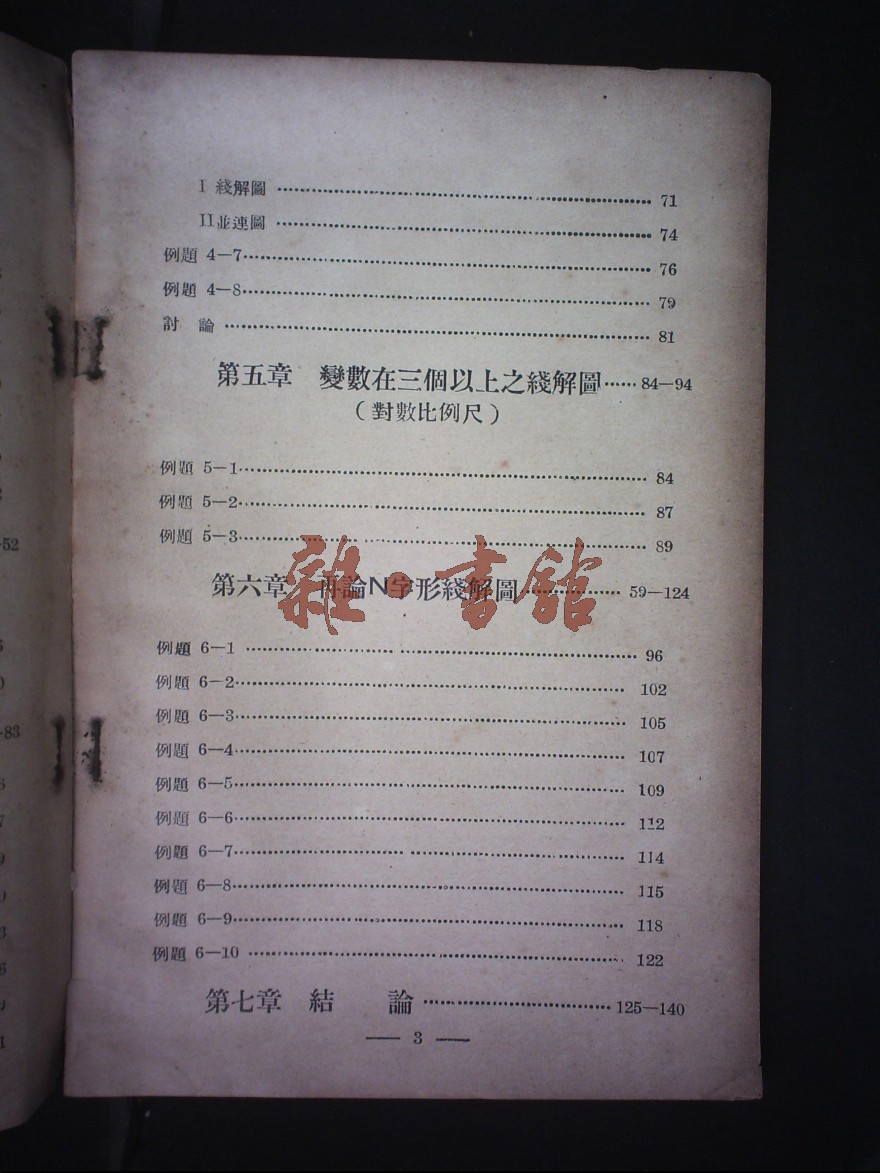 I 綫解圖 …… 71
II並連圖 …… 74
例題 4—7 …… 76
例題 4—8 …… 79
討 論 …… 81
第五章 變數在三個以上之綫解圖 …… 84—94
(對數比例尺)
例題 5—1 …… 84
例題 5—2 …… 87
例題 5—3 …… 89
第六章 再論N字形綫解圖 …… 59—124
雜·書館
例題 6—1 …… 96
例題 6—2 …… 102
例題 6—3 …… 105
例題 6—4 …… 107
例題 6—5 …… 109
例題 6—6 …… 112
例題 6—7 …… 114
例題 6—8 …… 115
例題 6—9 …… 118
例題 6—10 …… 122
第七章 結 論 …… 125—140
— 3 —
-52
-83